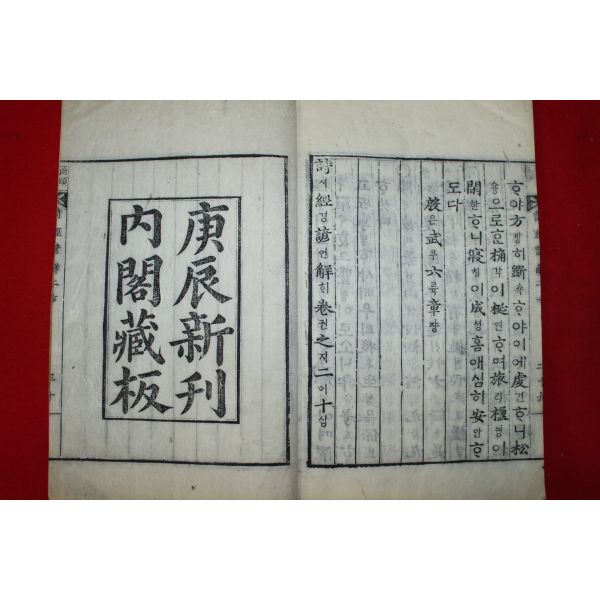 ᄒᆞ야方방히斲쟉ᄒᆞ야이에虔건ᄒᆞ니松
숑으로ᄒᆞᆫ桷각이梴연ᄒᆞ며旅려楹영이
閑한ᄒᆞ니寢침이成셩홈애심히安안ᄒᆞ
도다
殷은武무六륙章쟝
詩시經경諺언解ᄒᆡ卷권之지二이十십
庚辰新刊
內閣藏板